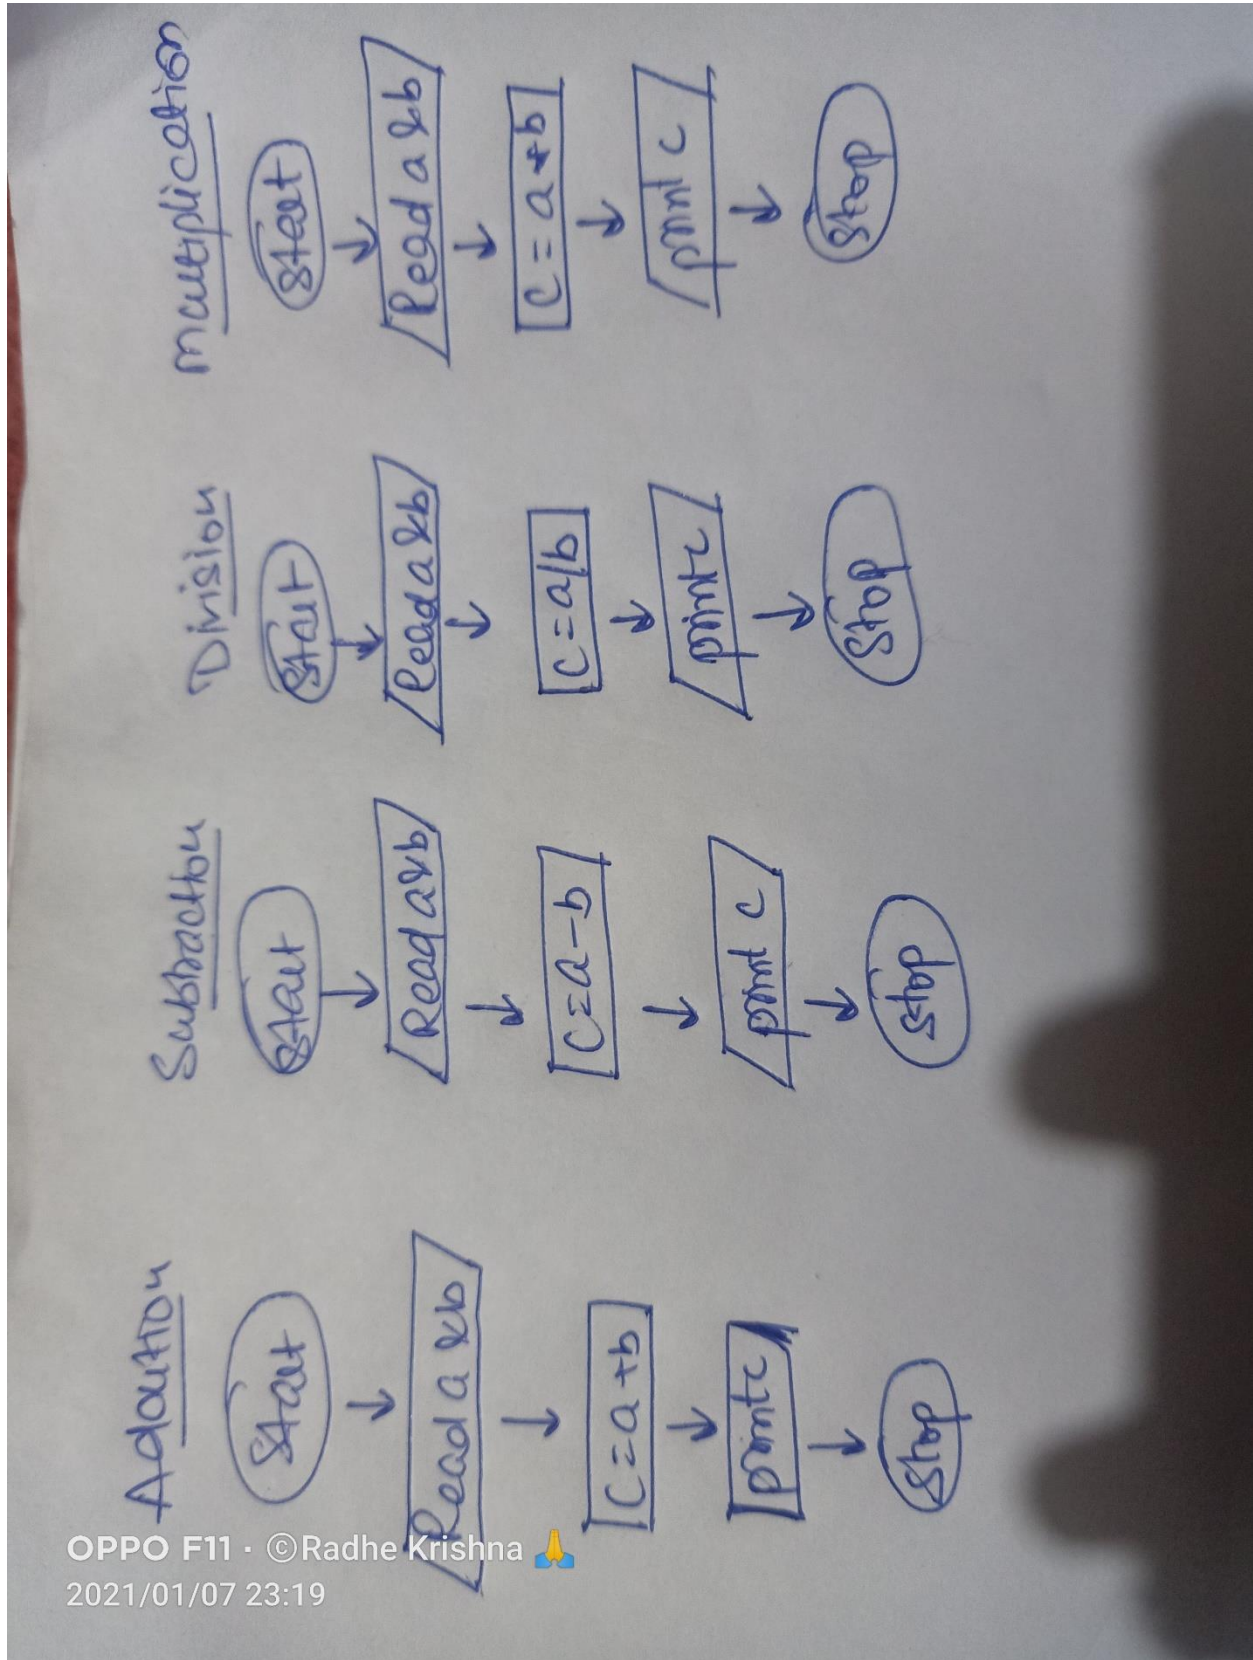 Addition
Start
Read a & b
C = a + b
print c
Stop
Subtraction
Start
Read a & b
C = a - b
print c
Stop
Division
Start
Read a & b
C = a/b
print c
Stop
Multiplication
Start
Read a & b
C = a * b
print c
Stop
OPPO F11 · ©Radhe Krishna 🙏
2021/01/07 23:19